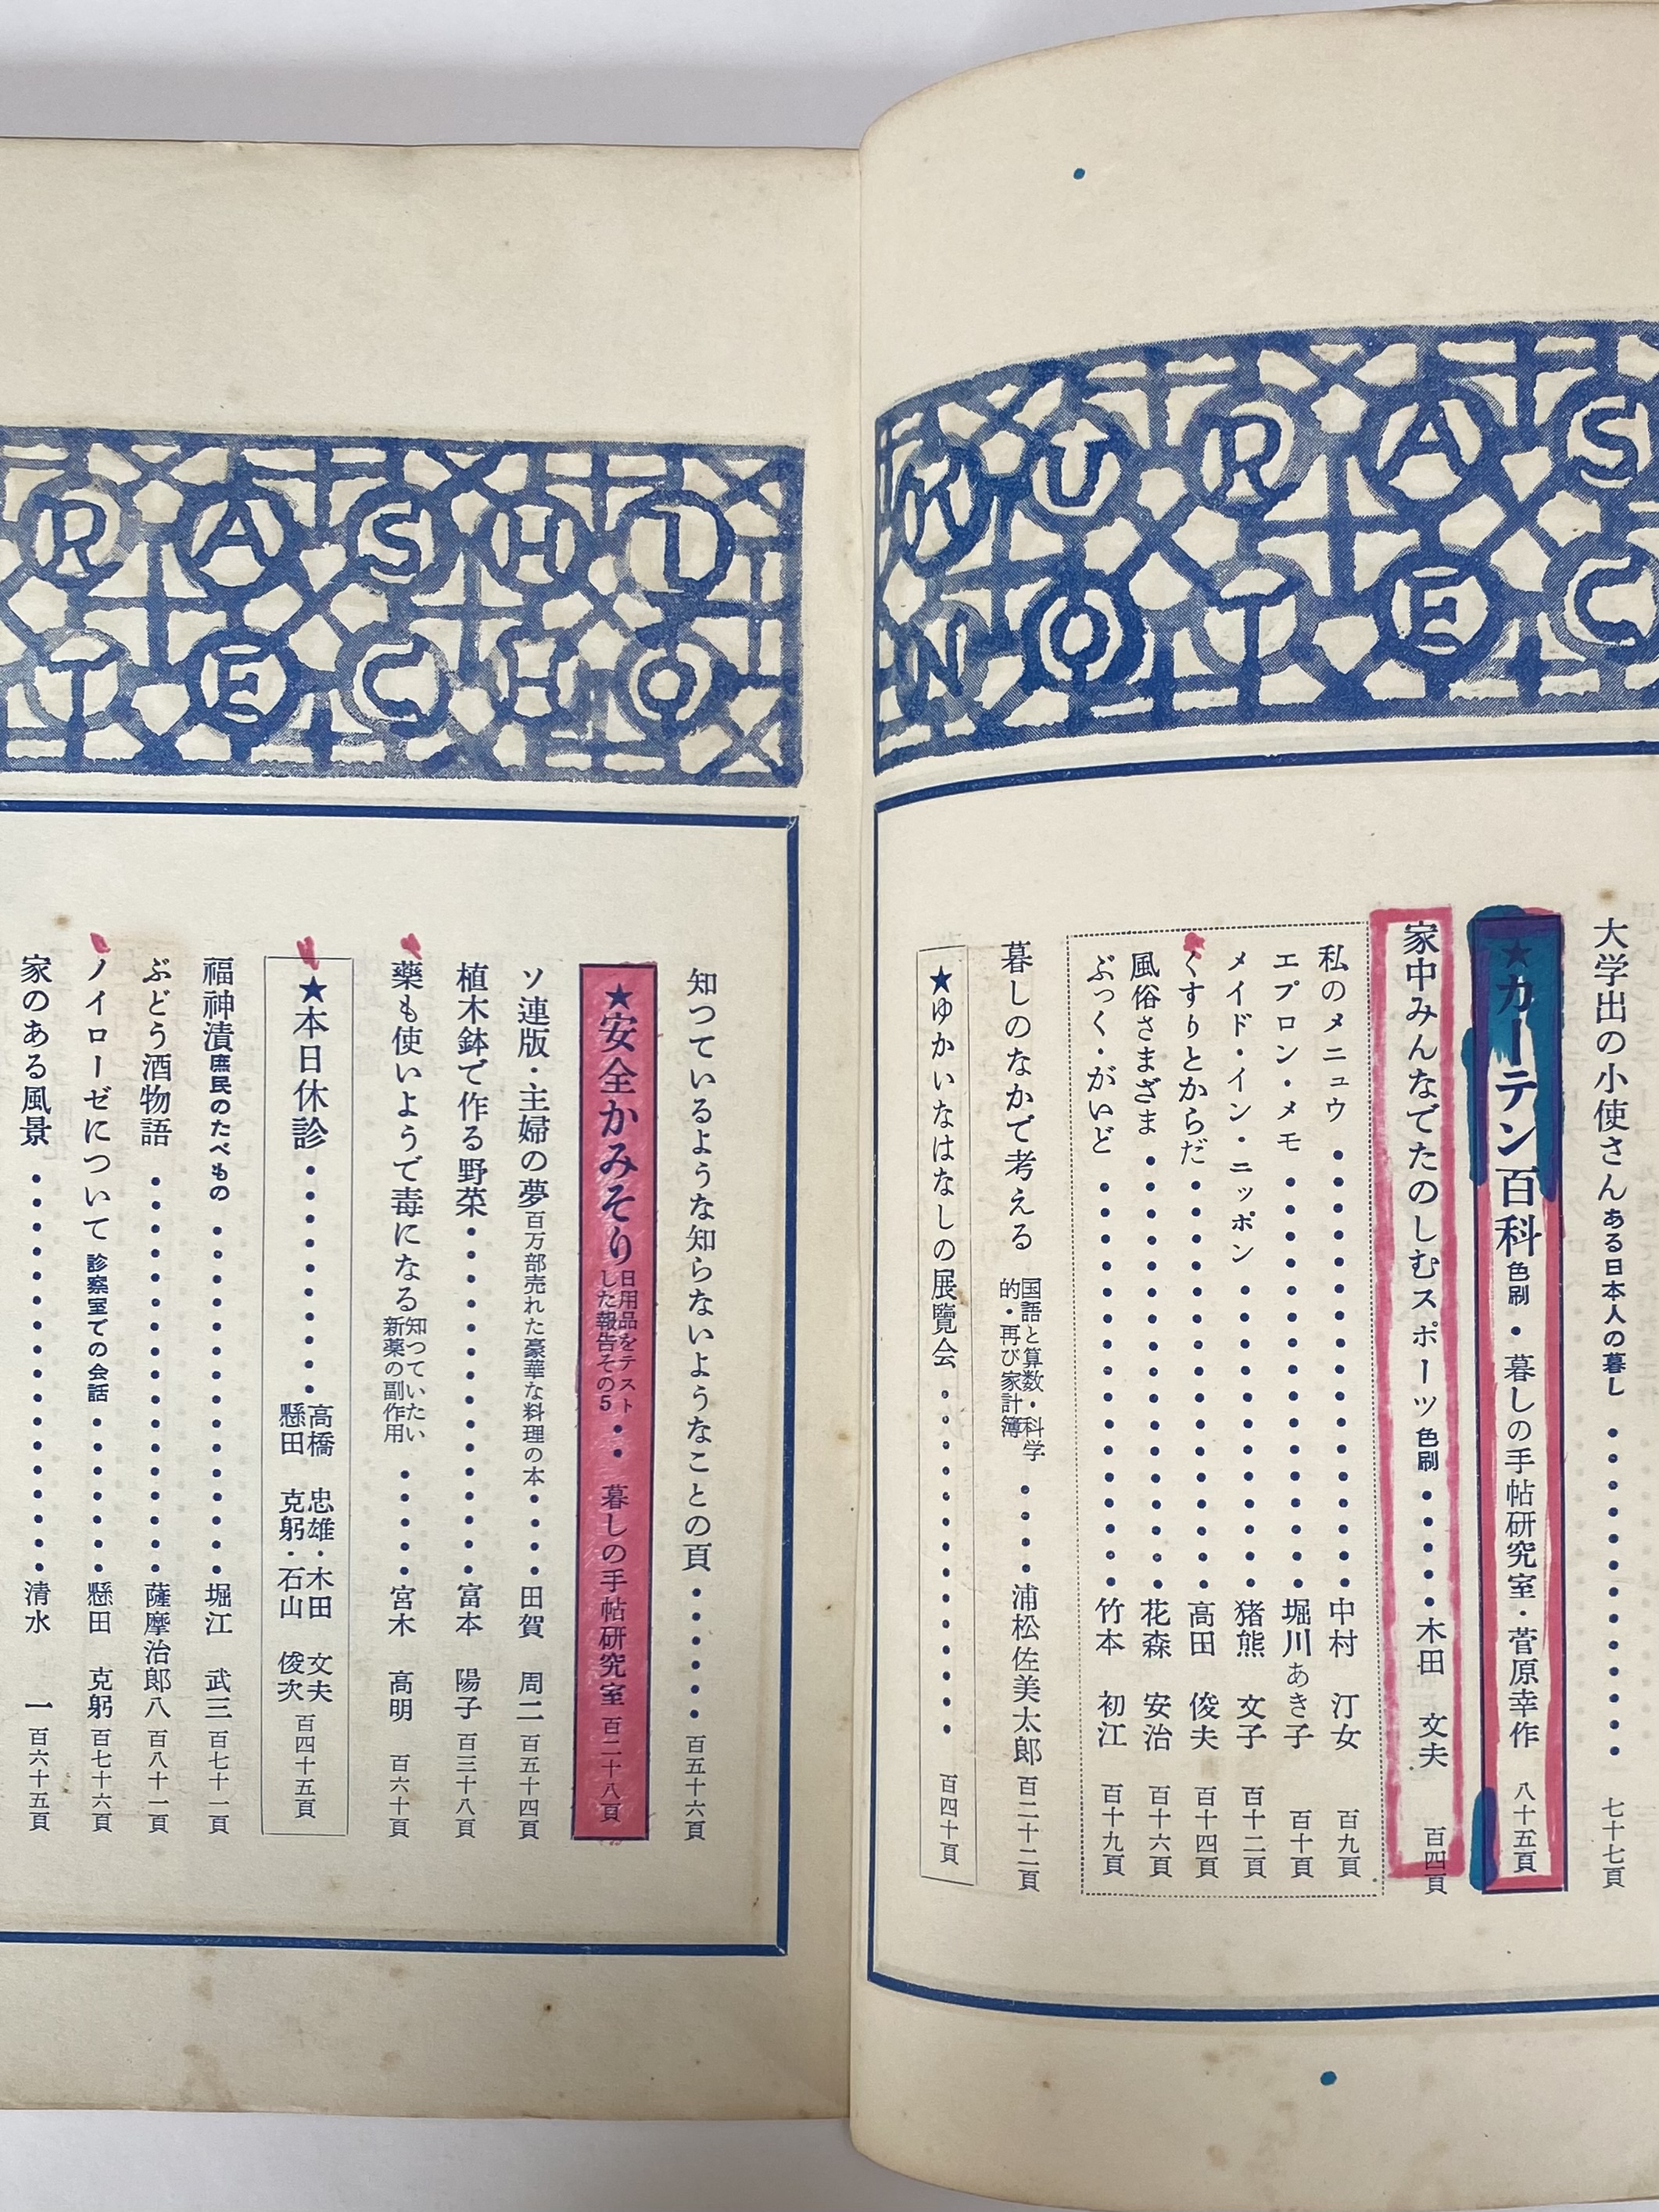 KURAS
NOTEC
大学出の小使さん ある日本人の暮し・・・・・・・・・・・・・七十七頁
★カーテン百科 色刷・暮しの手帖研究室・菅原幸作 八十五頁
家中みんなでたのしむスポーツ 色刷・・・・・木田 文夫 百四頁
私のメニュウ・・・・・・・・・・・・・・・・・中村 汀女 百九頁
エプロン・メモ・・・・・・・・・・・・・・・・堀川あき子 百十頁
メイド・イン・ニッポン・・・・・・・・・・・・猪熊 文子 百十二頁
くすりとからだ・・・・・・・・・・・・・・・・高田 俊夫 百十四頁
風俗さまざま・・・・・・・・・・・・・・・・・花森 安治 百十六頁
ぶっく・がいど・・・・・・・・・・・・・・・・竹本 初江 百十九頁
暮しのなかで考える 国語と算数・科学的・再び家計簿・・・・浦松佐美太郎 百二十二頁
★ゆかいなはなしの展覧会・・・・・・・・・・・・・・百四十頁
RASHI
TECHO
知つているような知らないようなことの頁・・・・・・百五十六頁
★安全かみそり 日用品をテストした報告その5・・暮しの手帖研究室 百二十八頁
ソ連版・主婦の夢 百万部売れた豪華な料理の本・・・・田賀 周二 百五十四頁
植木鉢で作る野菜・・・・・・・・・・・・・・・富本 陽子 百三十八頁
藥も使いようで毒になる 知つていたい新薬の副作用・・・・・宮木 高明 百六十頁
★本日休診・・・・・・・・・・高橋 忠雄・木田 文夫 懸田 克躬・石山 俊次 百四十五頁
福神漬 庶民のたべもの・・・・・・・・・・・・・・・堀江 武三 百七十一頁
ぶどう酒物語・・・・・・・・・・・・・・・・・薩摩治郎八 百八十一頁
ノイローゼについて 診察室での会話・・・・・・・懸田 克躬 百七十六頁
家のある風景・・・・・・・・・・・・・・・・・清水 一 百六十五頁